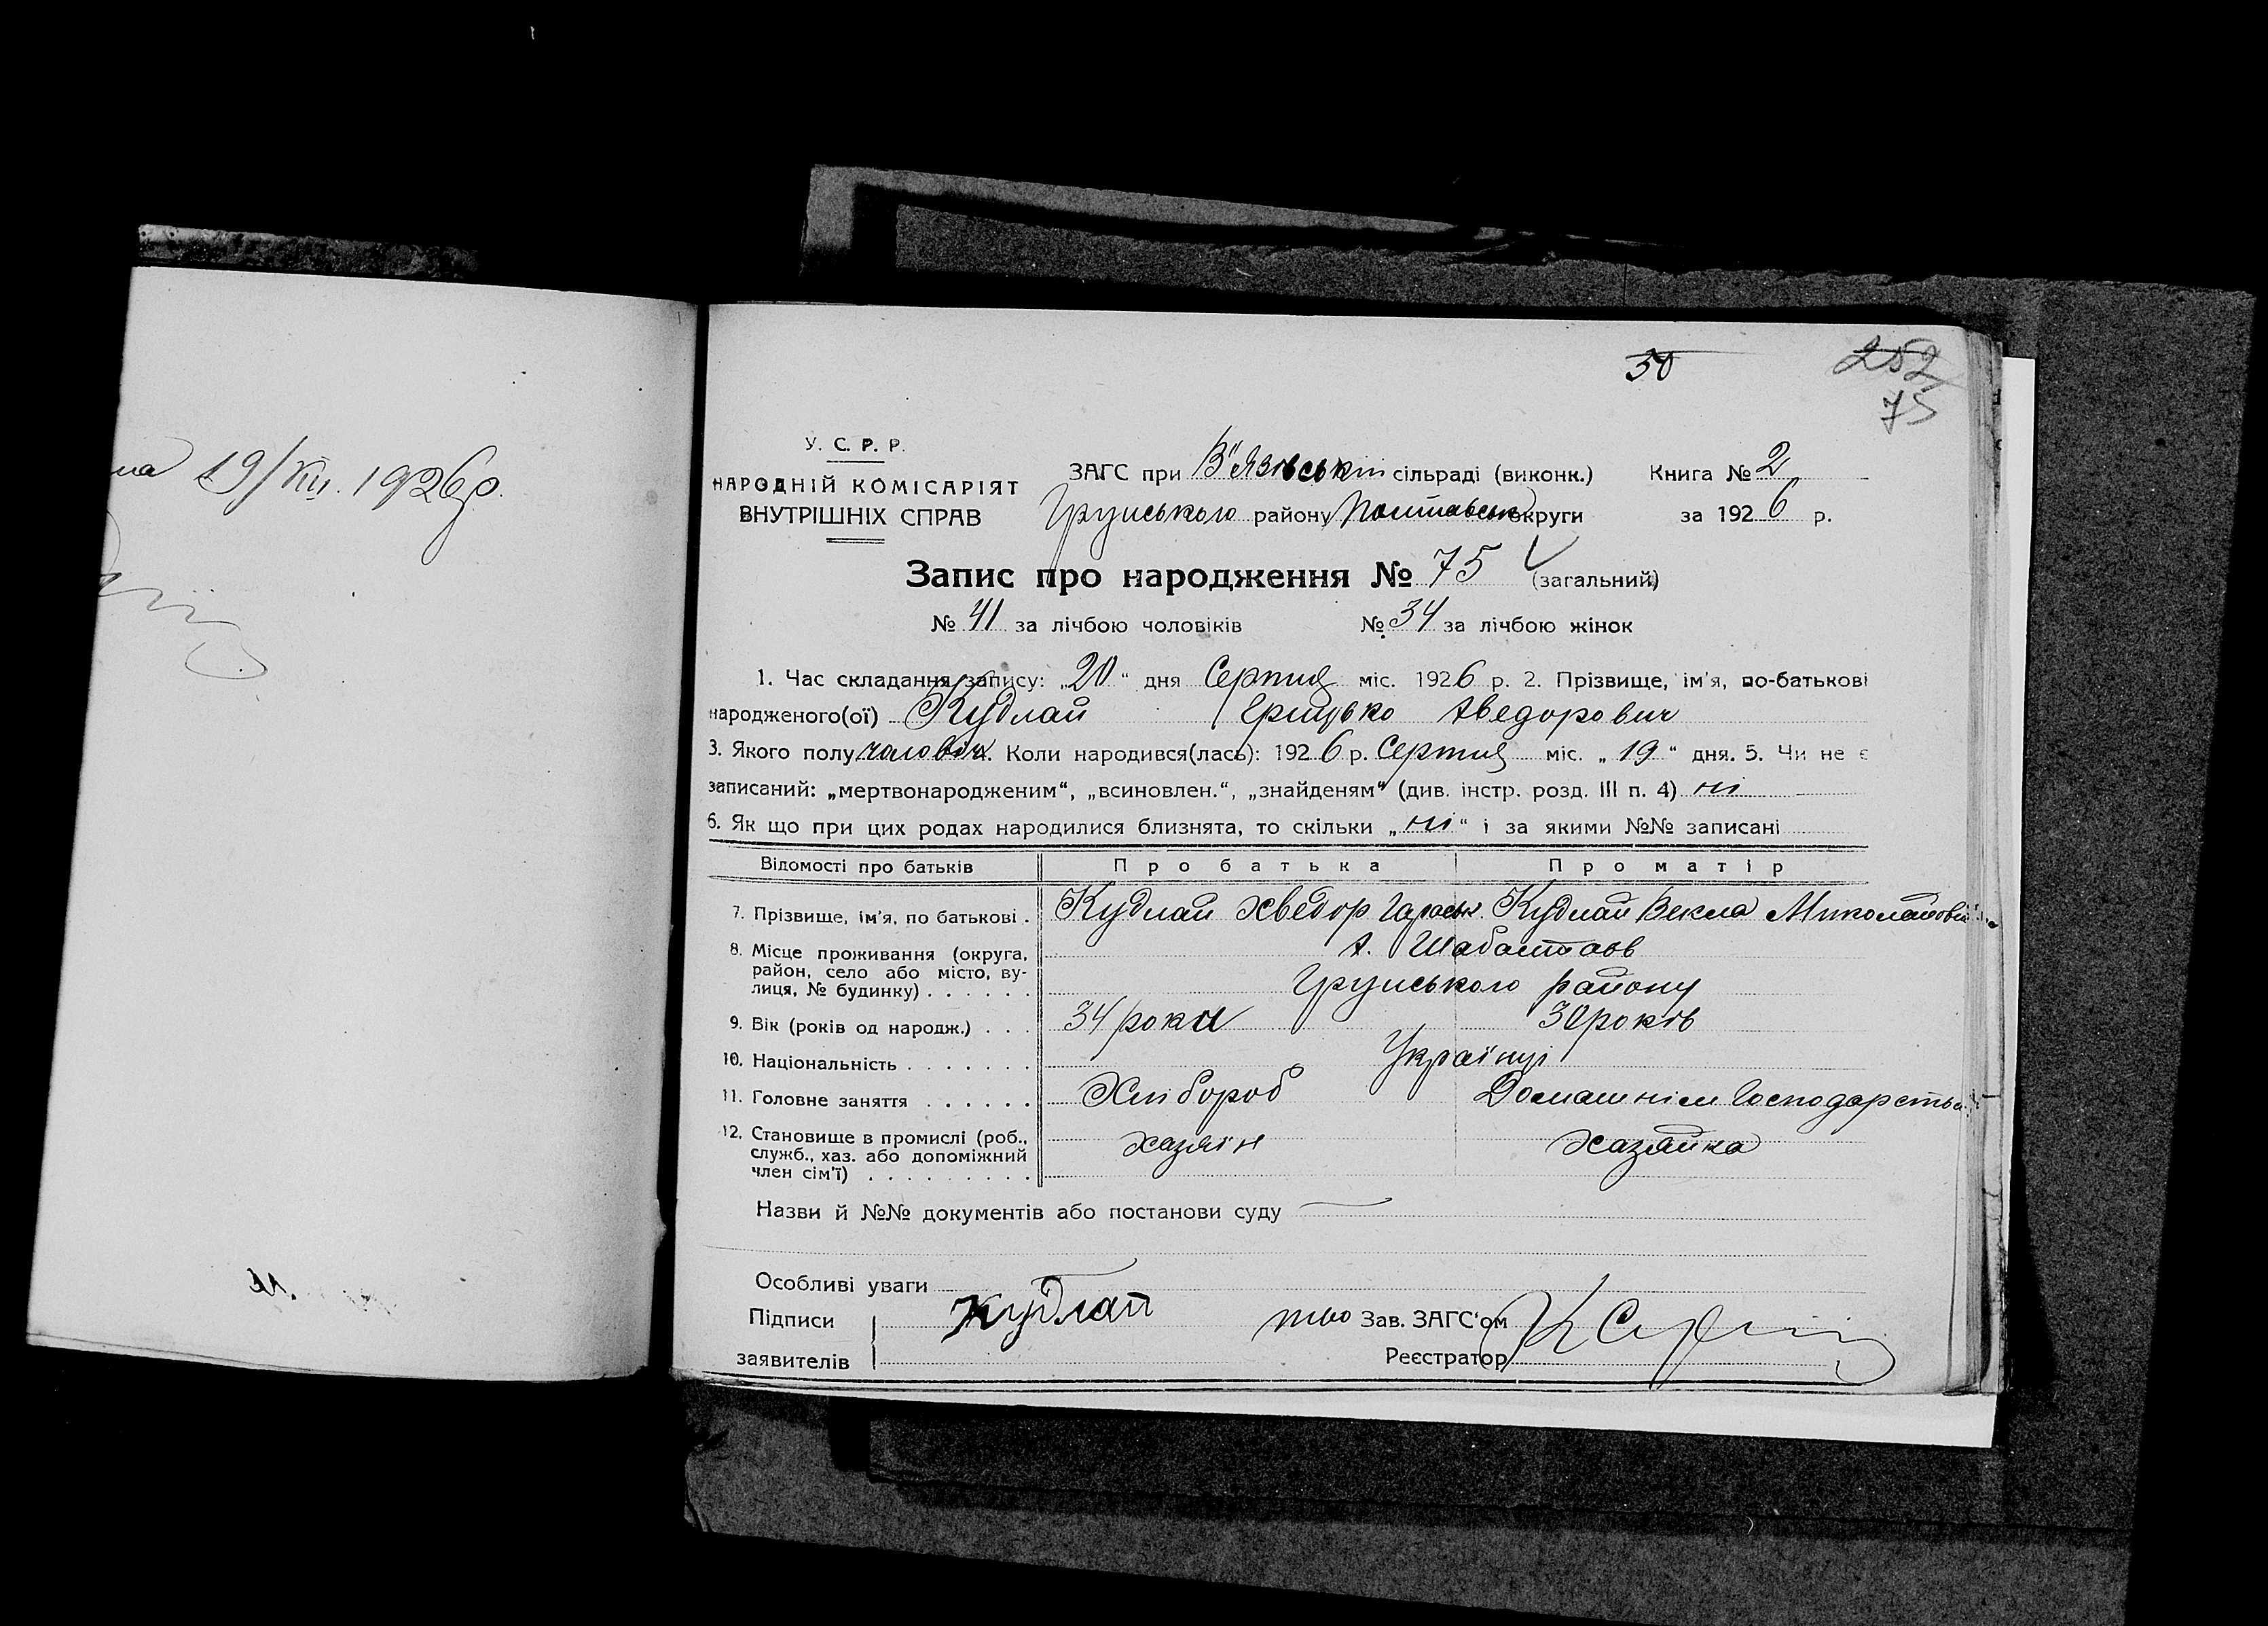 на 19/XII. 1926 р.
30
252
75
У. С. Р. Р.
НАРОДНІЙ КОМІСАРІЯТ
ВНУТРІШНІХ СПРАВ
ЗАГС при В'язівській сільраді (виконк.) Книга № 2
Грунського району Полтавськ округи за 1926 р.
Запис про народження № 75 (загальний)
№ 41 за лічбою чоловіків № 34 за лічбою жінок
1. Час складання запису: „20“ дня Серпня міс. 1926 р. 2. Прізвище, ім'я, по-батькові
народженого(ої) Кудлай Грицько Хведорович
3. Якого полу чоловіч. Коли народився(лась): 1926 р. Серпня міс. „19“ дня. 5. Чи не є
записаний: „мертвонародженим“, „всиновлен.“, „знайденям“ (див. інстр. розд. III п. 4) ні
6. Як що при цих родах народилися близнята, то скільки „ні“ і за якими №№ записані
Відомості про батьків Про батька Про матір
7. Прізвище, ім'я, по батькові . Кудлай Хведор Гараськ. Кудлай Векла Миколаївна
8. Місце проживання (округа, район, село або місто, вулиця, № будинку) . . . . . . х. Шабалтаїв
Грунського району
9. Вік (років од народж.) . . . 34 роки 30 років
10. Національність . . . . . . . Українці
11. Головне заняття . . . . . . Хлібороб Домашнім Господарством
12. Становище в промислі (роб., служб., хаз. або допоміжний член сім'ї) . . . . . . . . . хазяїн хазяйка
Назви й №№ документів або постанови суду —
Особливі уваги
Підписи Кудлай тво Зав. ЗАГС'ом
заявителів Реєстратор